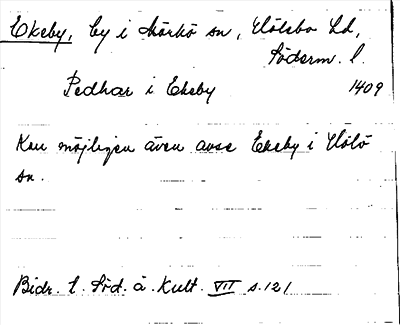 Ekeby, by i Mörkö sn, Hölebo hd,
Söderm. l.
Pedhar i Ekeby 1409
Kan möjligen även avse Ekeby i Hölö
sn.
Bidr. t. Söd. ä. Kult. VII s. 121